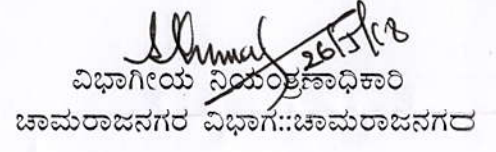 26/5/18
ವಿಭಾಗೀಯ ನಿಯಂತ್ರಣಾಧಿಕಾರಿ
ಚಾಮರಾಜನಗರ ವಿಭಾಗ::ಚಾಮರಾಜನಗರ